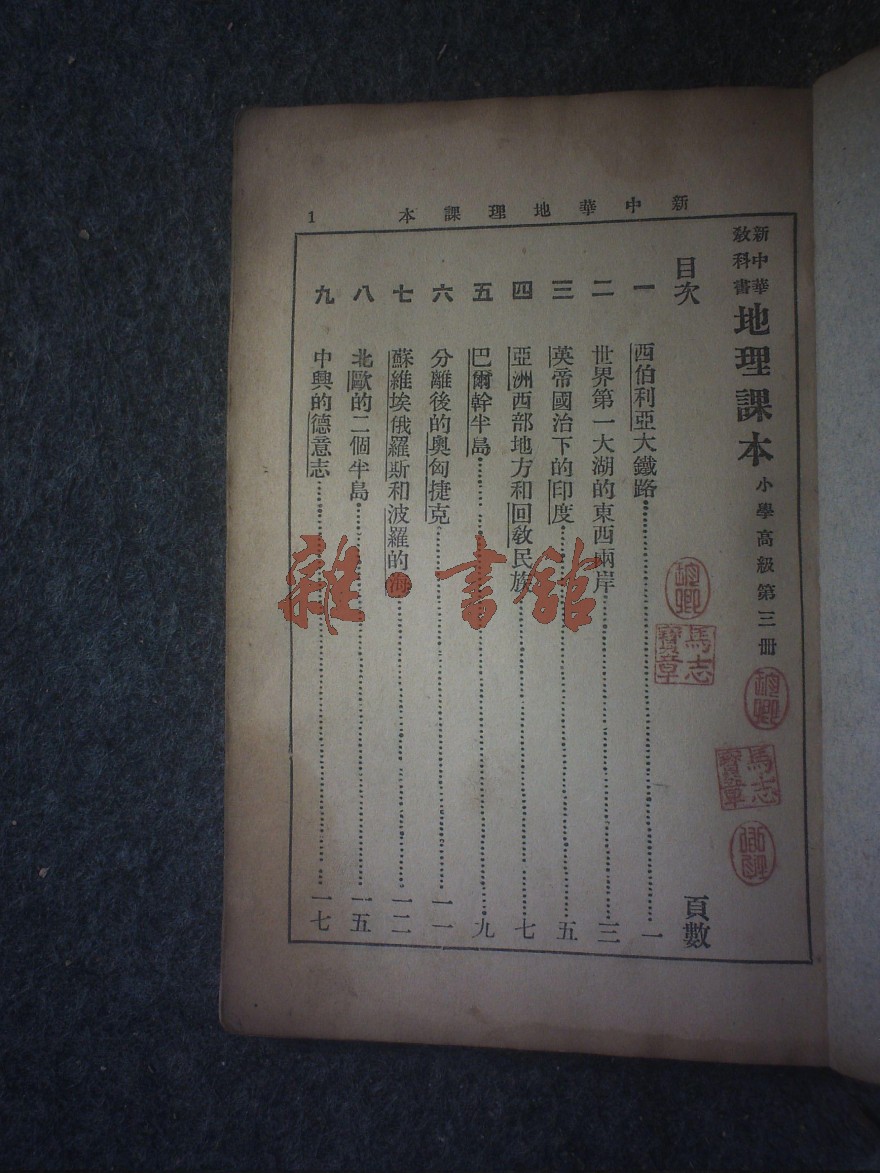 新中華地理課本
1
新中華
教科書
地理課本 小學高級第三冊
目次 頁數
一 西伯利亞大鐵路 一
二 世界第一大湖的東西兩岸 三
三 英帝國治下的印度 五
四 亞洲西部地方和回教民族 七
五 巴爾幹半島 九
六 分離後的奧匈捷克 一一
七 蘇維埃俄羅斯和波羅的海 一二
八 北歐的二個半島 一五
九 中興的德意志 一七
雜·書館
馬志
寶章
馬志
寶章